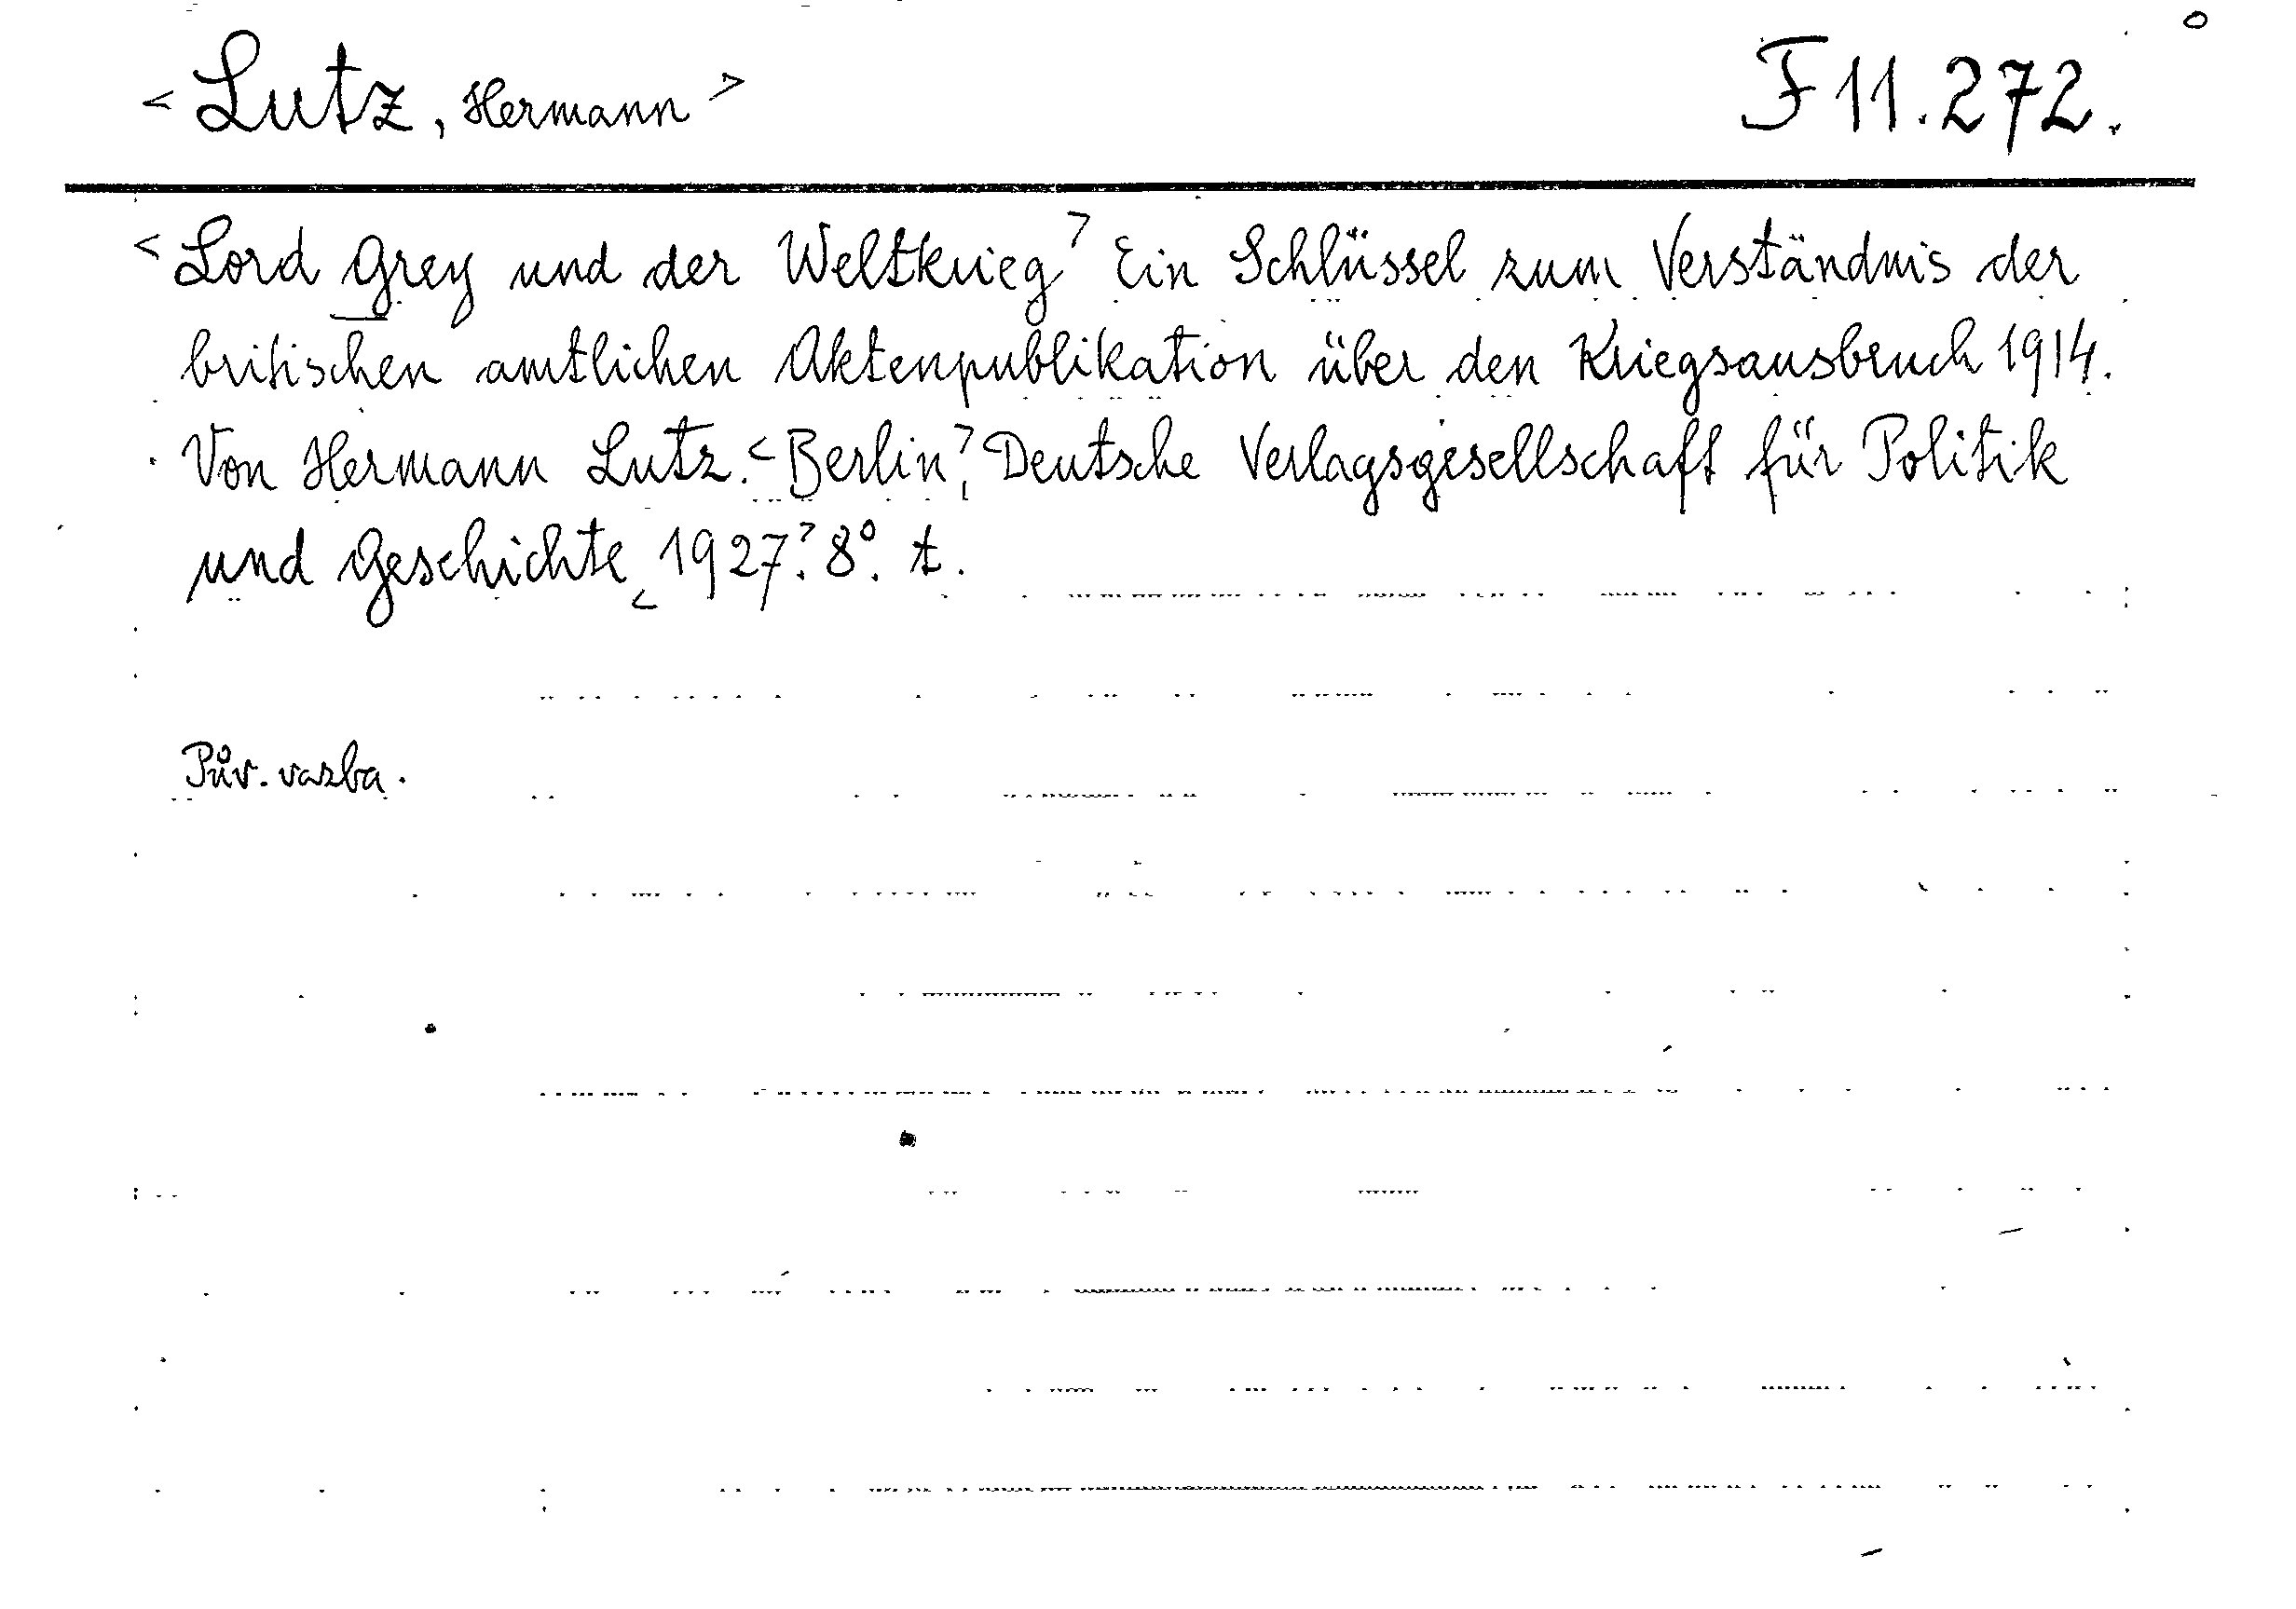 <Lutz, Hermann> F 11.272.
<Lord Grey und der Weltkrieg> Ein Schlüssel zum Verständnis der
britischen amtlichen Aktenpublikation über den Kriegsausbruch 1914.
Von Hermann Lutz. <Berlin>, Deutsche Verlagsgesellschaft für Politik
und Geschichte <1927>. 8°. t.
Pův. vazba.